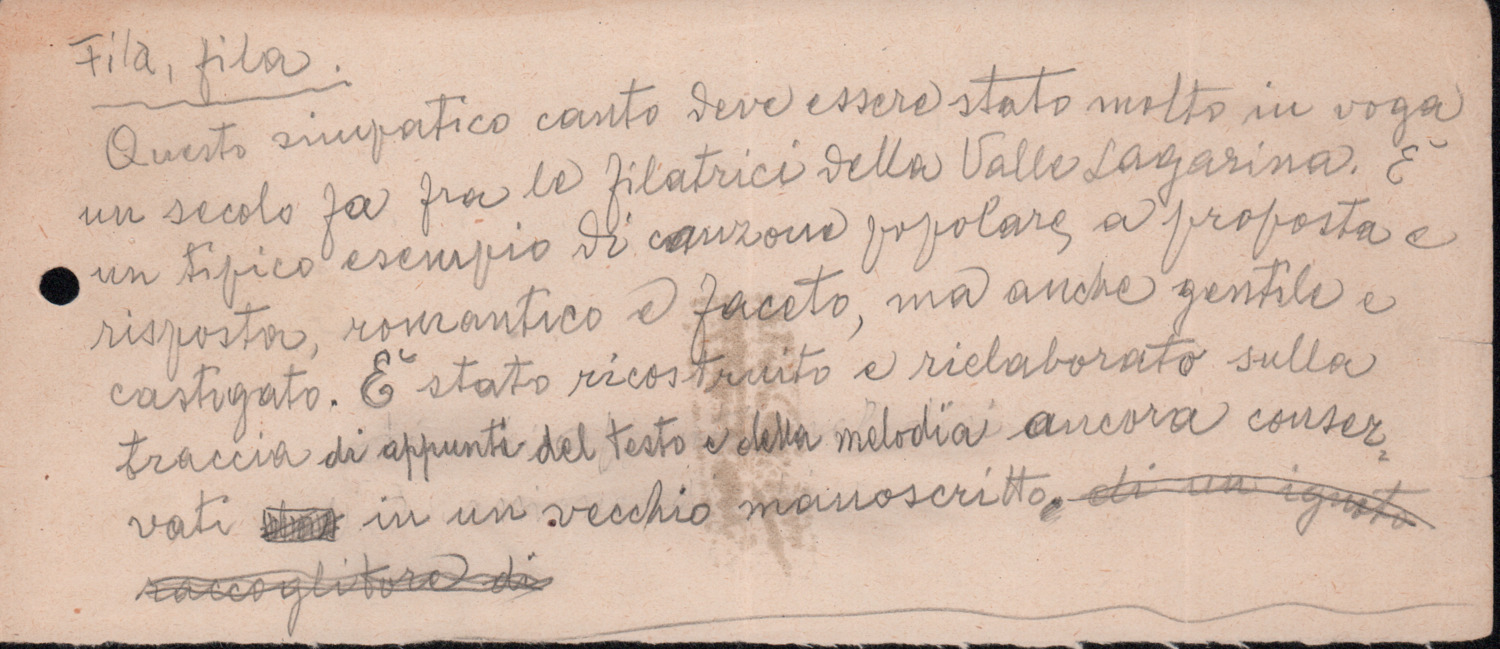 Fila, fila.
Questo simpatico canto deve essere stato molto in voga
un secolo fa fra le filatrici della Valle Lagarina. È
un tipico esempio di canzone popolare, a proposta e
risposta, romantico e faceto, ma anche gentile e
castigato. È stato ricostruito e rielaborato sulla
traccia di appunti del testo e della melodia ancora conser=
vati in un vecchio manoscritto. di un ignoto
raccoglitore di